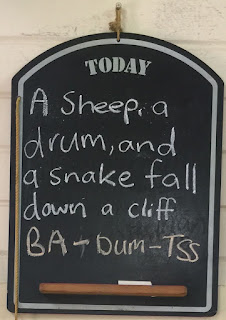 TODAY
A Sheep, a
drum, and
a snake fall
down a cliff
BA-DUM-TSS